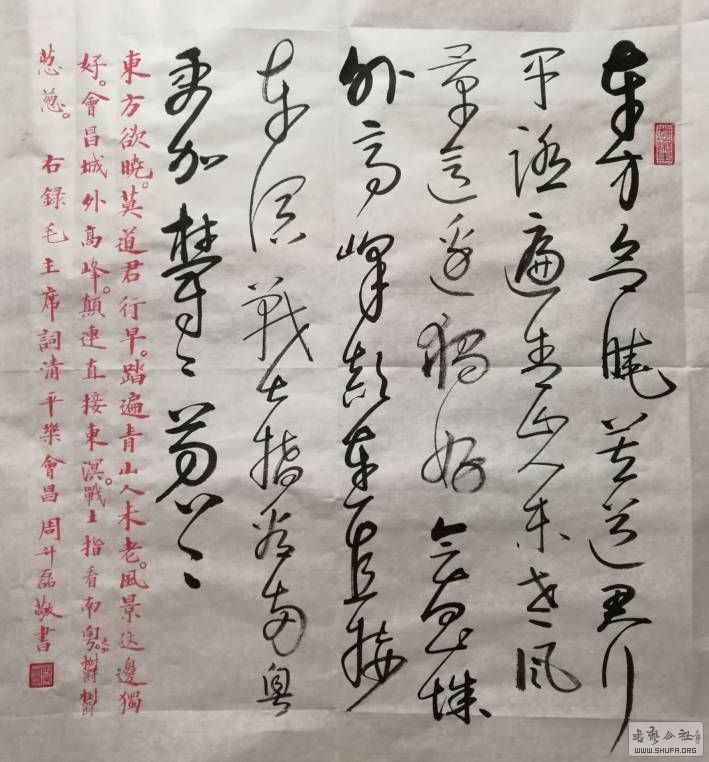 東方欲曉莫道君行
早踏遍青山人未老風
景這邊獨好會昌城
外高峰顛連直接
東溟戰士指看南粵
更加鬱〻葱〻
東方欲曉。莫道君行早。踏遍青山人未老。風景這邊獨
好。會昌城外高峰。顛連直接東溟。戰士指看南粵。更加鬱鬱
葱葱。 右錄毛主席詞清平樂會昌 周升磊敬書
書藝公社
WWW.SHUFA.ORG